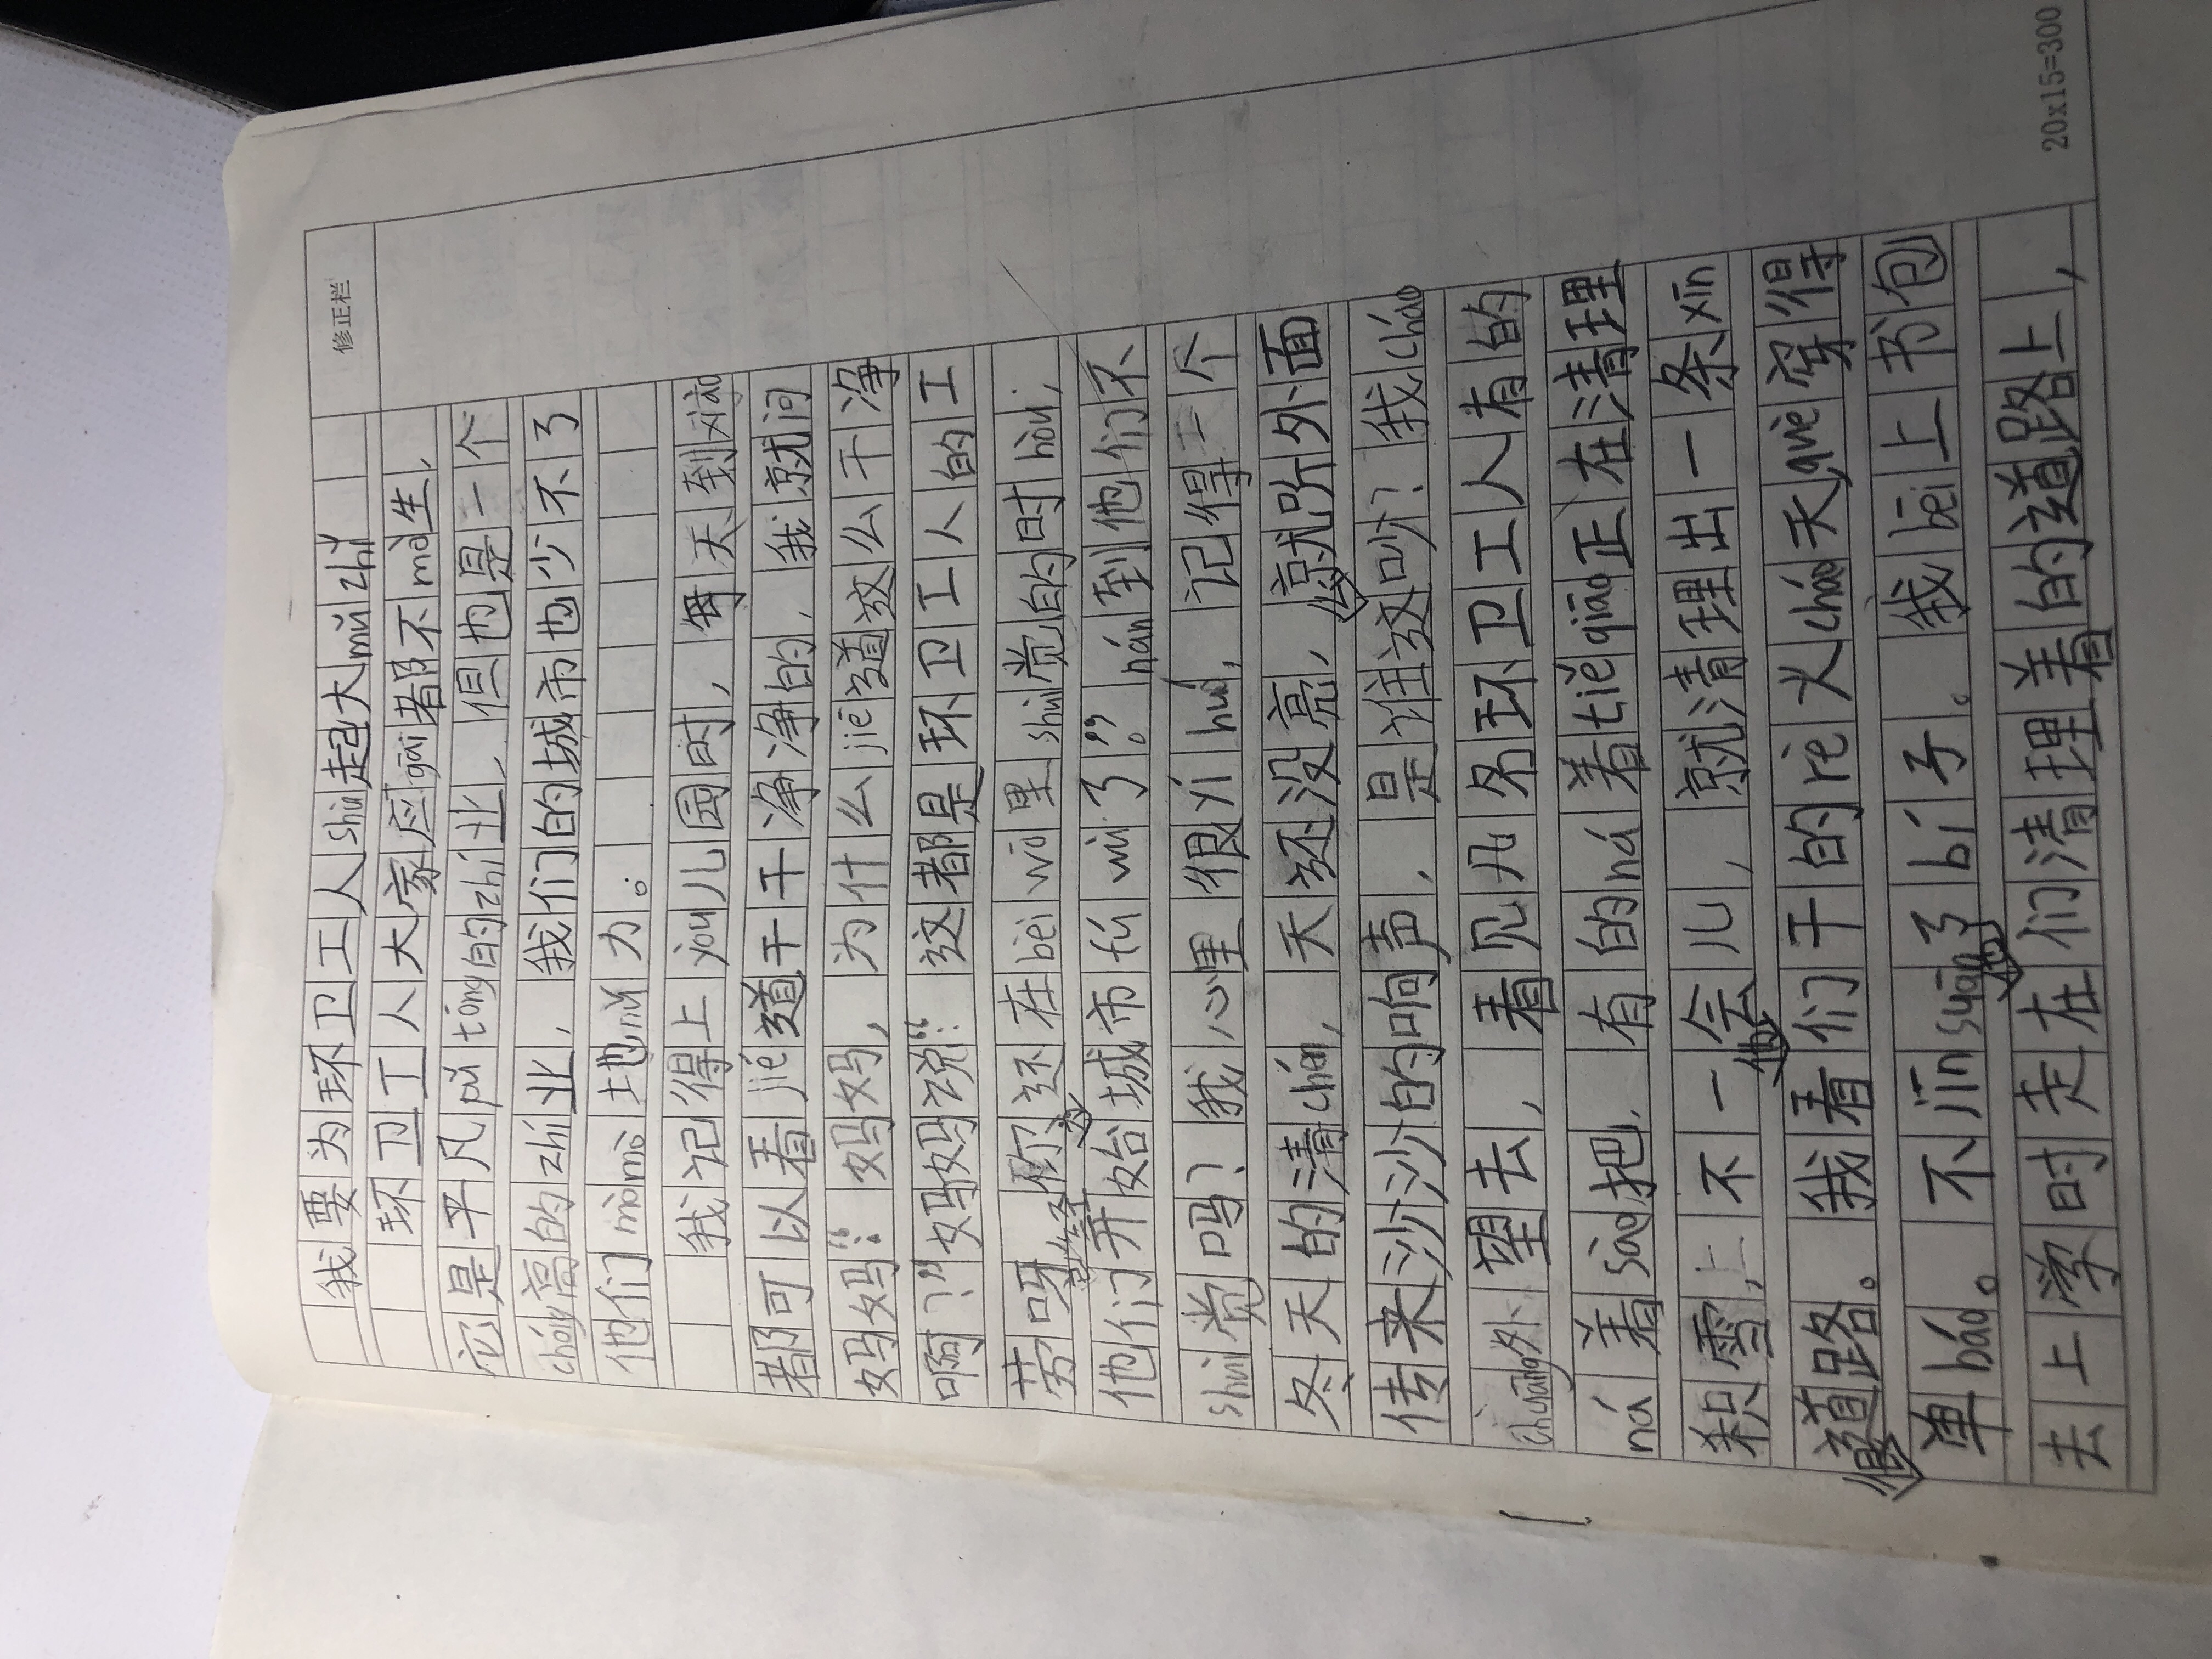 修正栏
我要为环卫工人shù起大mǔ zhǐ
环卫工人大家应gāi都不mò生,
它是平凡pǔ tōng的zhí业,但也是一个
chóng高的zhí业,我们的城市也少不了
他们mò mò土地nǔ力。
我记得上yòu儿园时,每天到xiào
都可以看jiē道干干净净的,我就问
妈妈:“妈妈,为什么jiē道这么干净
啊?”妈妈说:“这都是环卫工人的工
劳呀,你还在bèi wō里shuì觉的时hòu,
他们已经开始为城市fú wù了。”nán到他们不
shuì觉吗?我心里很yí huò,记得有一个
冬天的清chén,天还没亮,就听外面
传来沙沙沙的响声,是谁这吵?我cháo
chuāng外望去,看见几名环卫工人有的
ná着sào把,有的ná着tiě qiāo正在清理
积雪,不一会儿,就清理出一条xīn
道路。我看他们干的rè火cháo天què穿得
单báo。不jīn suān了bí子。我bēi上书包
去上学时走在他们清理着的道路上,
20x15=300